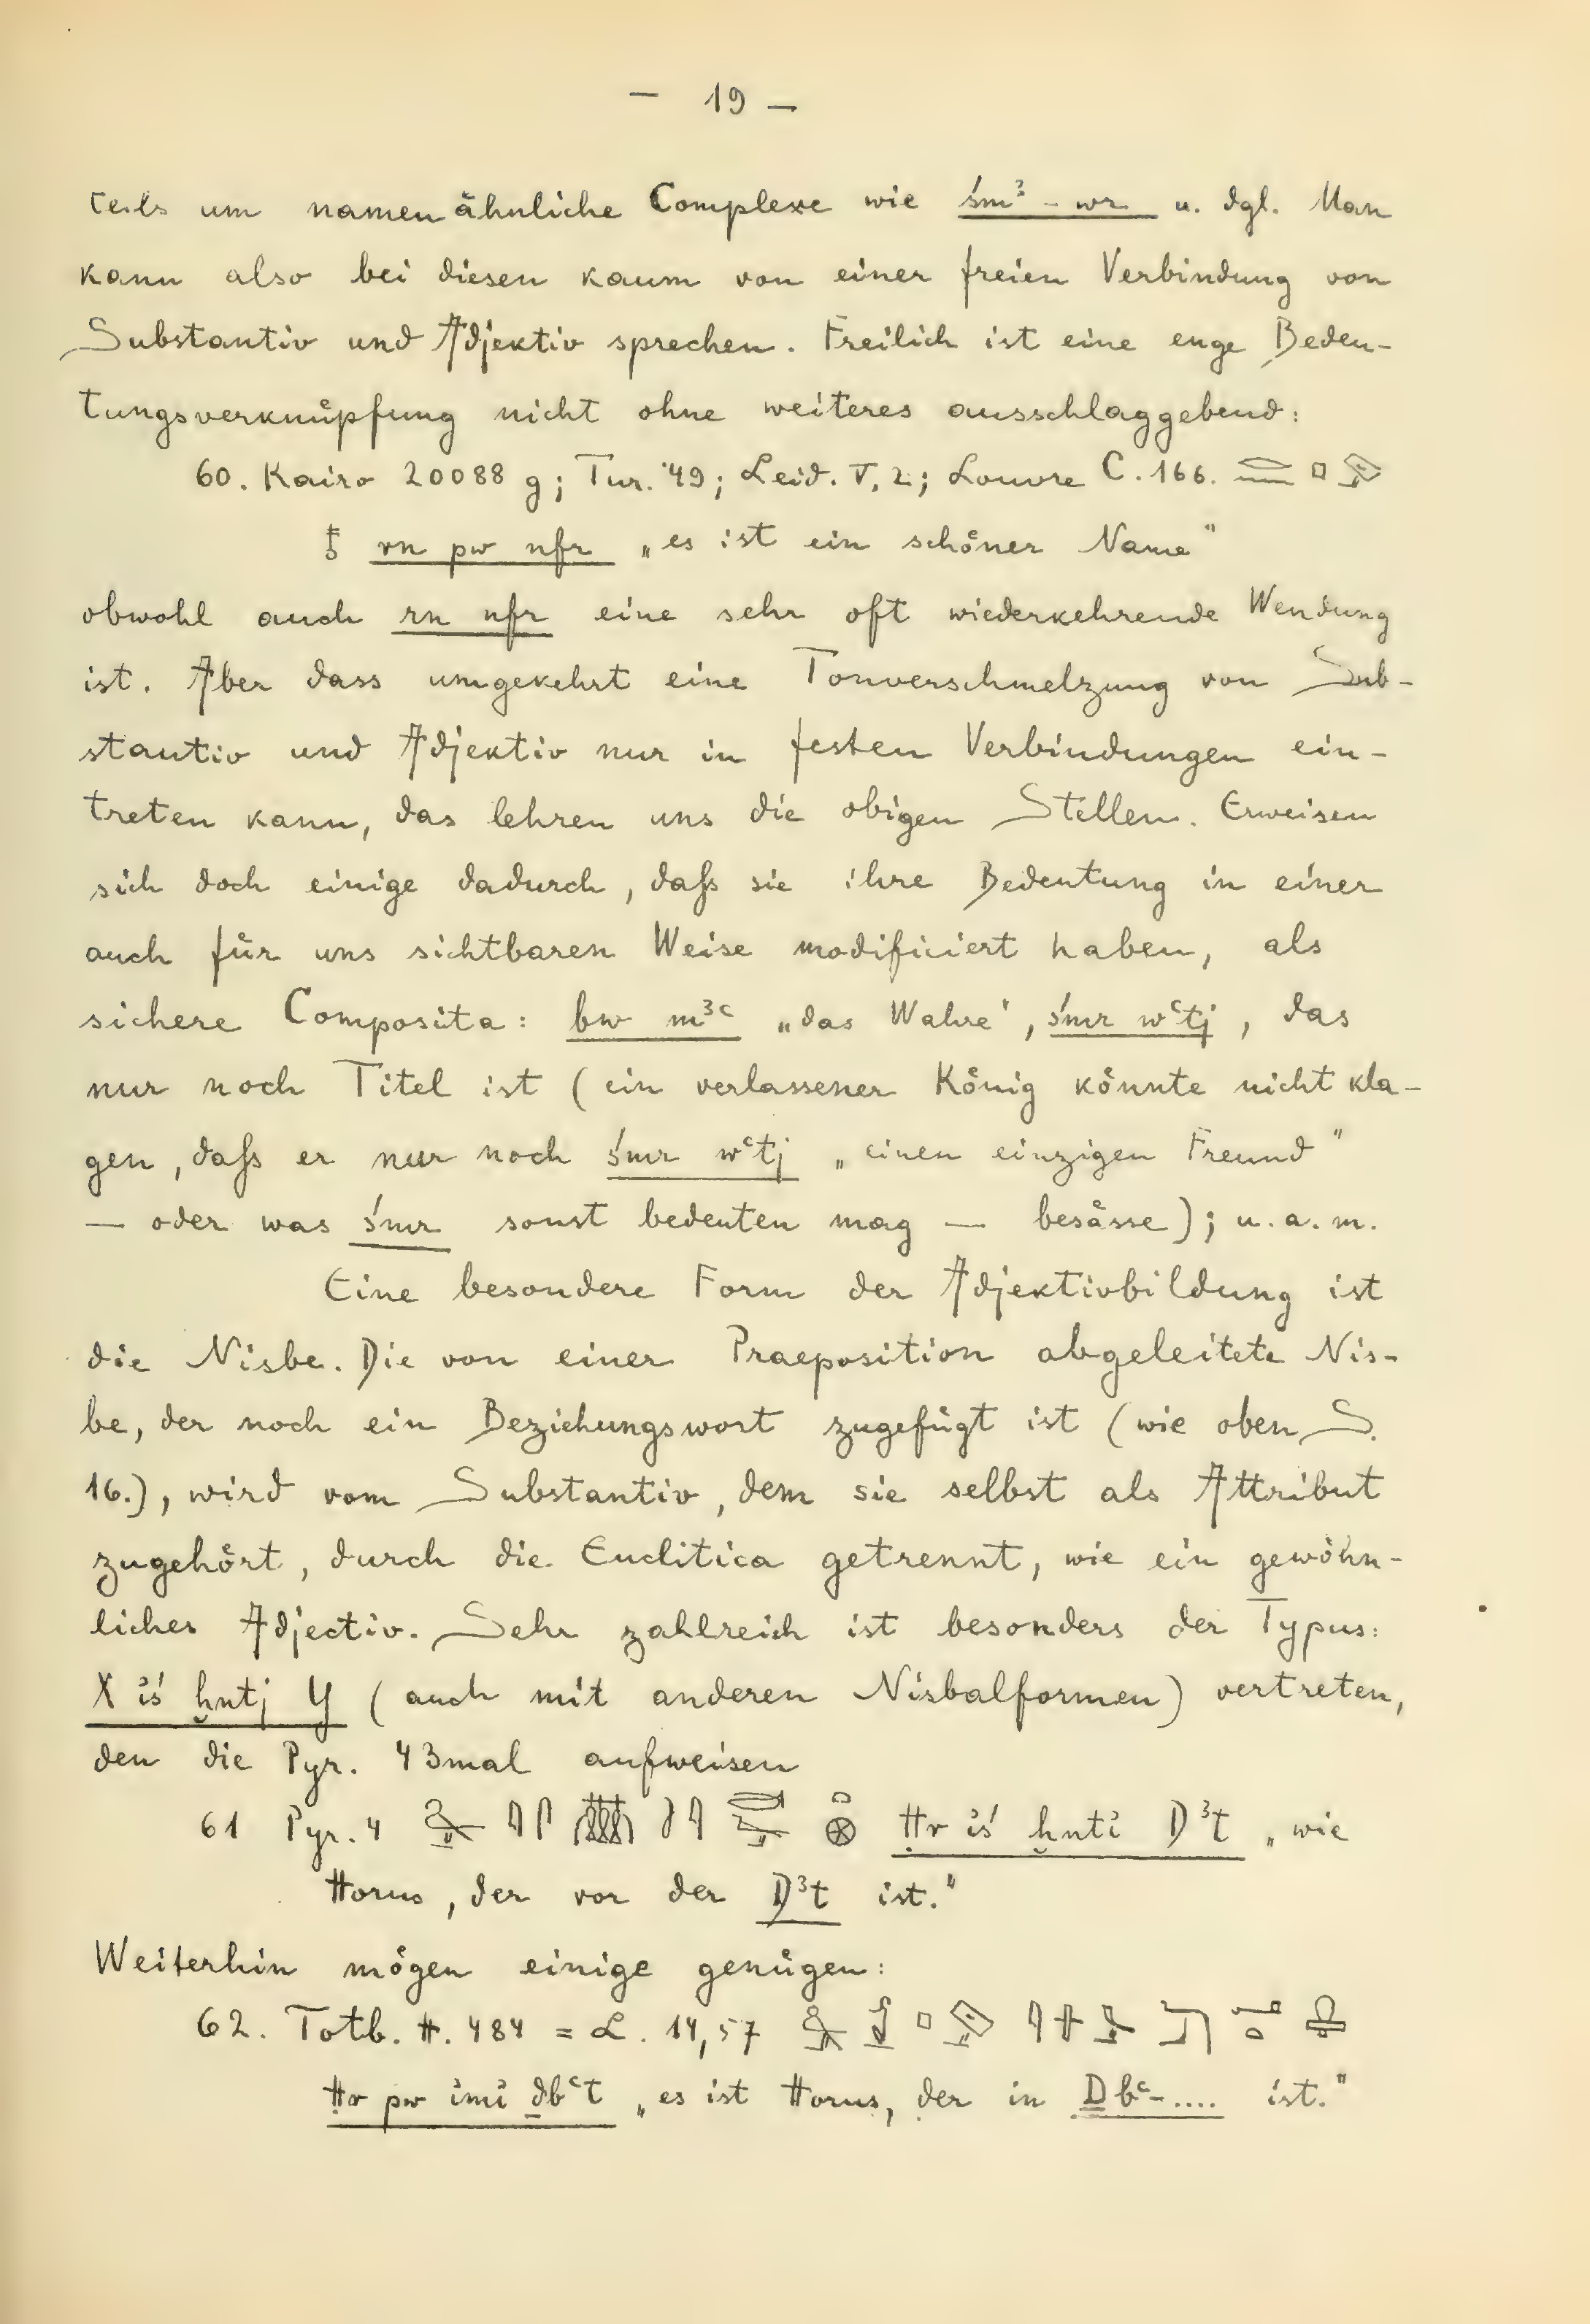 – 19 –
teils um namenähnliche Complexe wie śmꜣ-wr u. dgl. Man
kann also bei diesen kaum von einer freien Verbindung von
Substantiv und Adjektiv sprechen. Freilich ist eine enge Bedeu-
tungsverknüpfung nicht ohne weiteres ausschlaggebend:
60. Kairo 20088 g; Tur. 49; Leid. V, 2; Louvre C. 166.
rn pw nfr „es ist ein schöner Name"
obwohl auch rn nfr eine sehr oft wiederkehrende Wendung
ist. Aber dass umgekehrt eine Tonverschmelzung von Sub-
stantiv und Adjektiv nur in festen Verbindungen ein-
treten kann, das lehren uns die obigen Stellen. Erweisen
sich doch einige dadurch, daß sie ihre Bedeutung in einer
auch für uns sichtbaren Weise modificiert haben, als
sichere Composita: bw mꜣꜥ „das Wahre", śmr wꜥtj, das
nur noch Titel ist (ein verlassener König könnte nicht kla-
gen, daß er nur noch śmr wꜥtj „einen einzigen Freund"
— oder was śmr sonst bedeuten mag — besässe); u. a. m.
Eine besondere Form der Adjektivbildung ist
die Nisbe. Die von einer Praeposition abgeleitete Nis-
be, der noch ein Beziehungswort zugefügt ist (wie oben S.
16.), wird vom Substantiv, dem sie selbst als Attribut
zugehört, durch die Enclitica getrennt, wie ein gewöhn-
liches Adjectiv. Sehr zahlreich ist besonders der Typus:
X ꞽś ḫntj Y (auch mit anderen Nisbalformen) vertreten,
den die Pyr. 43mal aufweisen
61 Pyr. 4 Ḥr ꞽś ḫntꞽ Dꜣt „wie
Horus, der vor der Dꜣt ist."
Weiterhin mögen einige genügen:
62. Totb. H. 484 = L. 14,57
Ḥr pw ꞽmꞽ ḏbꜥt „es ist Horus, der in Ḏbꜥ-.... ist."